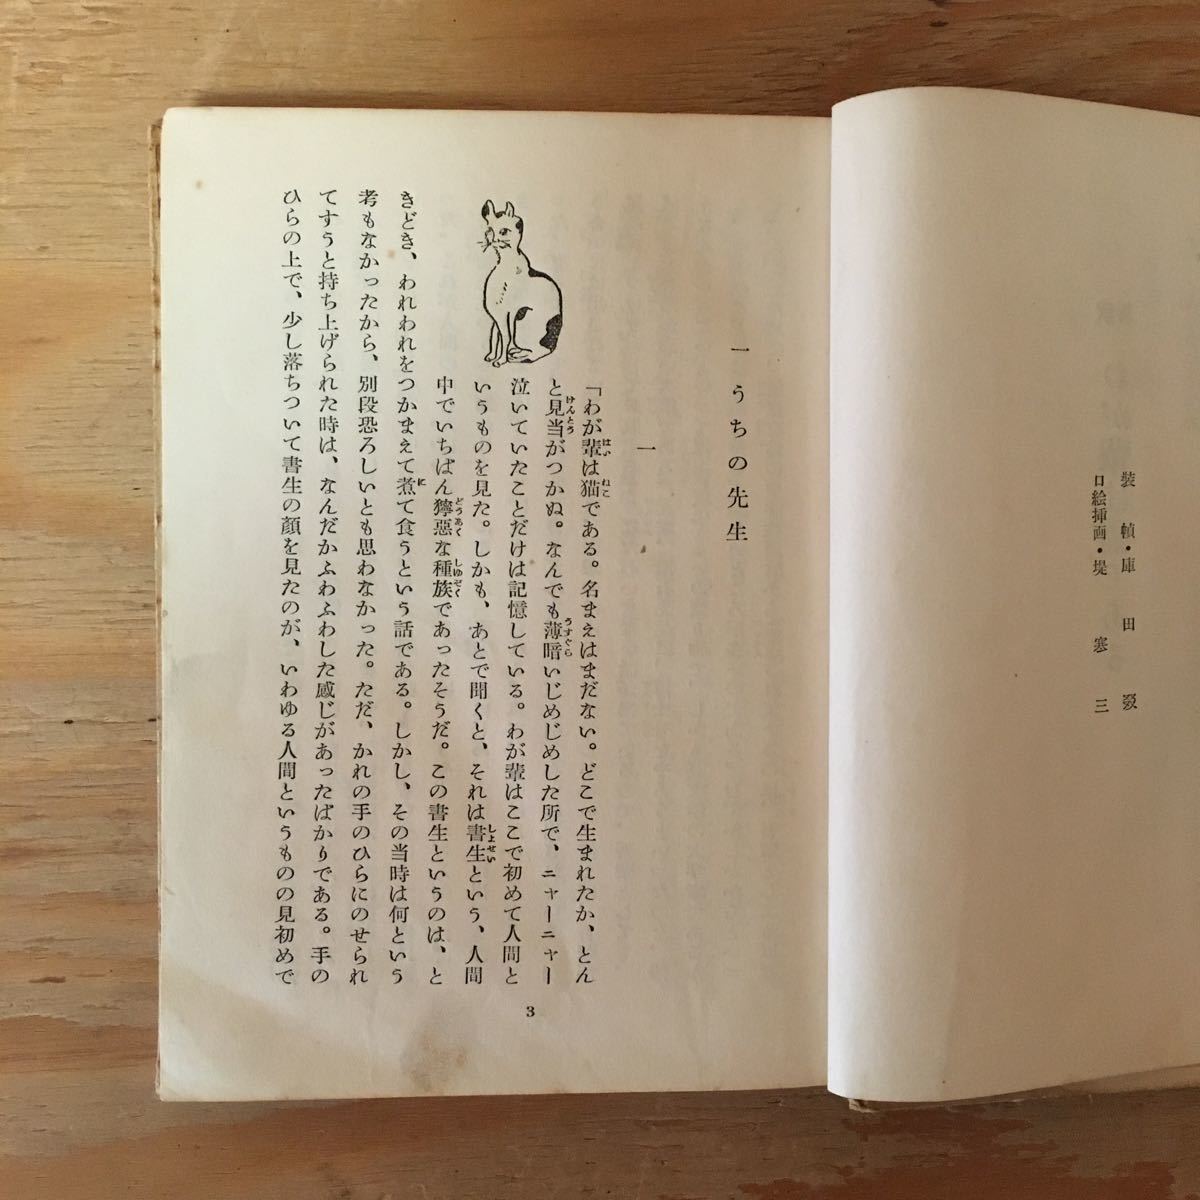 裝幀・庫田叕
口絵挿画・堤寒三
一 うちの先生
一
「わが輩は猫である。名まえはまだない。どこで生まれたか、とん
と見当がつかぬ。なんでも薄暗いじめじめした所で、ニャーニャー
泣いていたことだけは記憶している。わが輩はここで初めて人間と
いうものを見た。しかも、あとで聞くと、それは書生という、人間
中でいちばん獰惡な種族であったそうだ。この書生というのは、と
きどき、われわれをつかまえて煮て食うという話である。しかし、その当時は何という
考もなかったから、別段恐ろしいとも思わなかった。ただ、かれの手のひらにのせられ
てすうと持ち上げられた時は、なんだかふわふわした感じがあったばかりである。手の
ひらの上で、少し落ちついて書生の顔を見たのが、いわゆる人間というものの見初めで
3